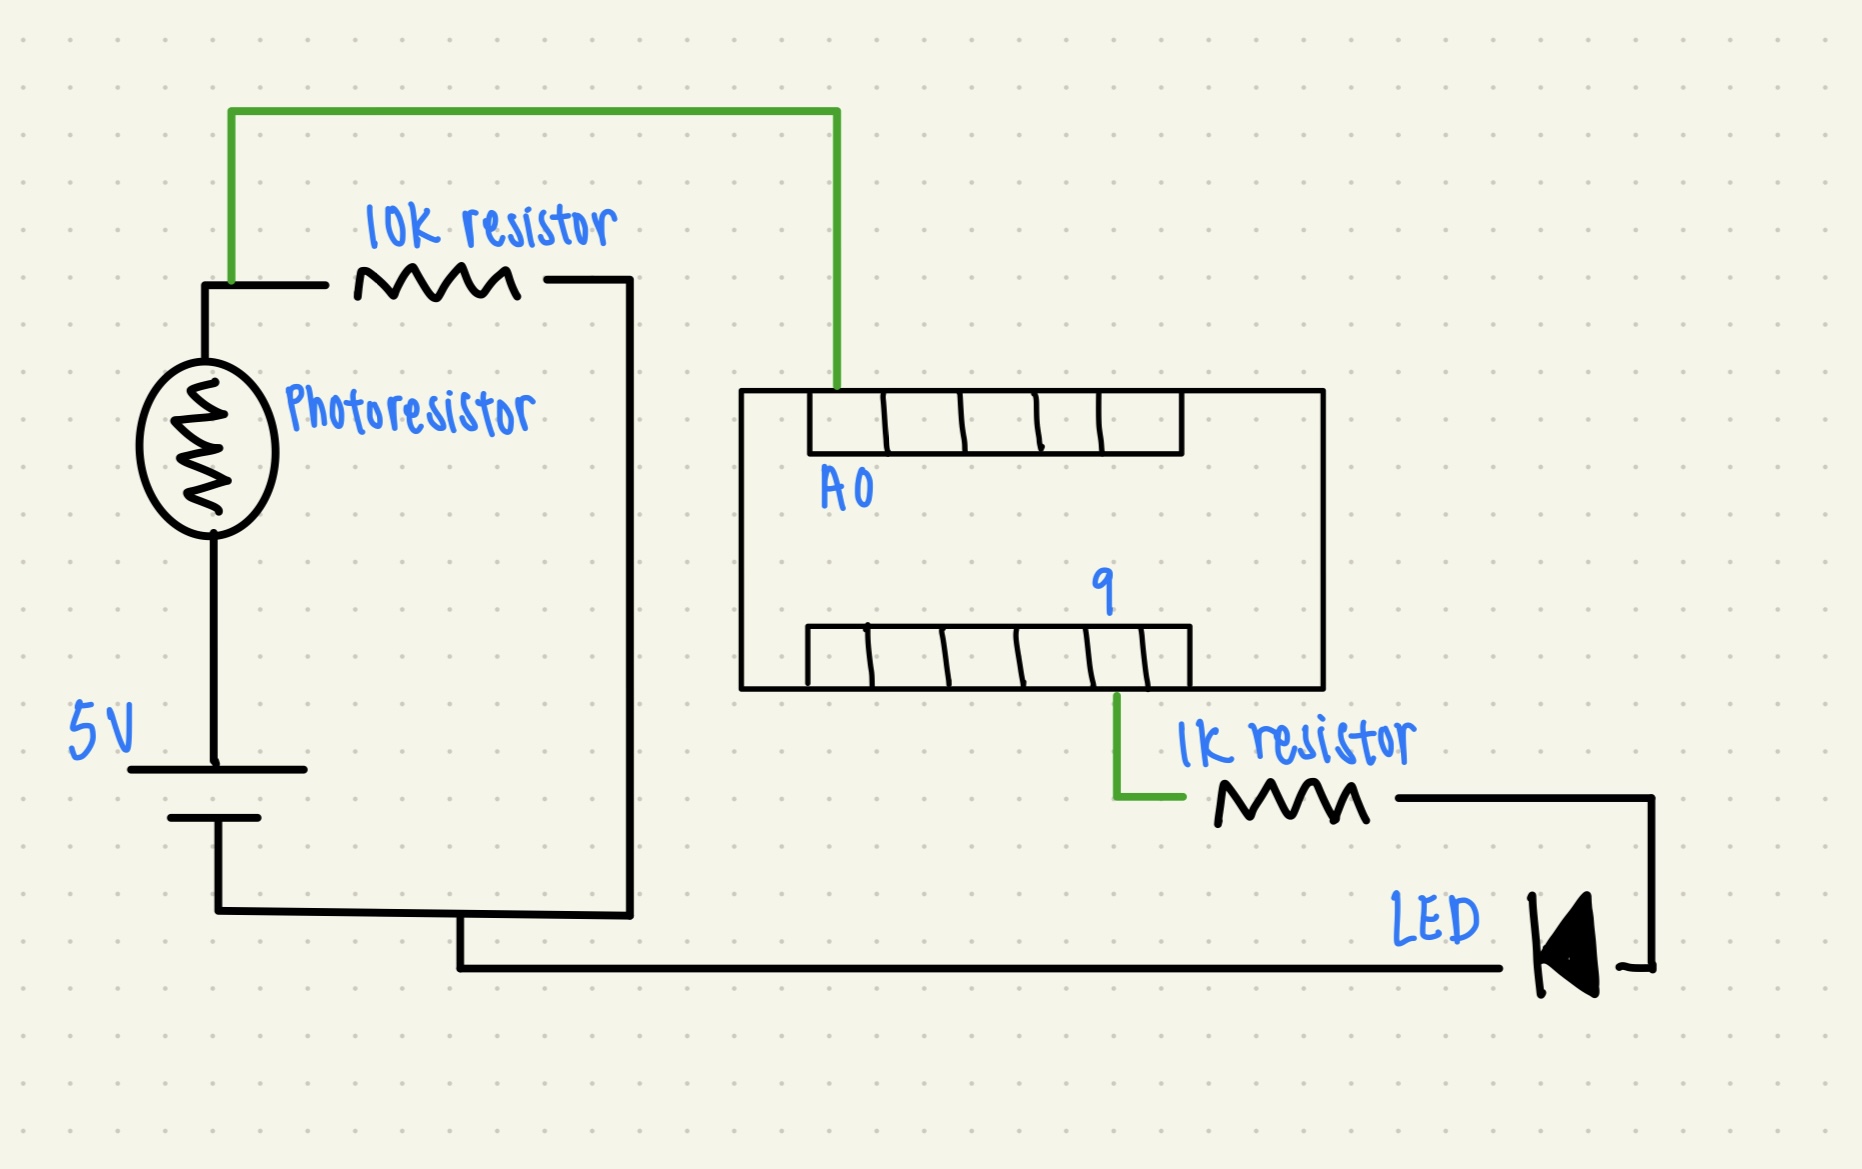 10K resistor
Photoresistor
A0
9
5V
1K resistor
LED